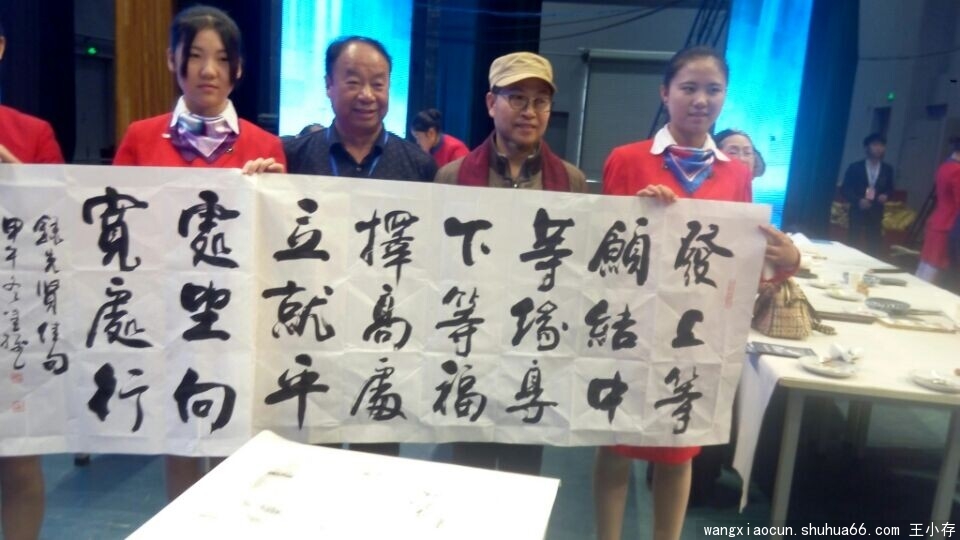 發上等
願結中
等緣享
下等福
擇高處
立就平
處坐向
寬處行
錄先賢佳句
甲午冬
wangxiaocun.shuhua66.com 王小存